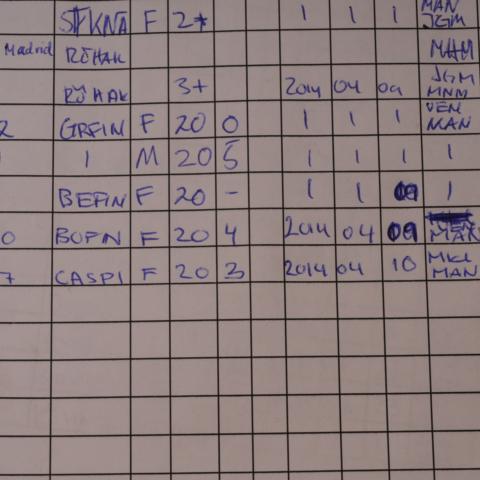 F 2+ 1 1 1 MAN JGM
Madrid REHAK
REHAK 3+ 2014 04 09 JGM MNM
2 GRFIN F 20 0 1 1 1 VEN MAN
1 1 M 20 5 1 1 1 1
BEFIN F 20 - 1 1 09 1
0 BOFIN F 20 4 2014 04 09 MAN
7 CASPI F 20 3 2014 04 10 MKL MAN